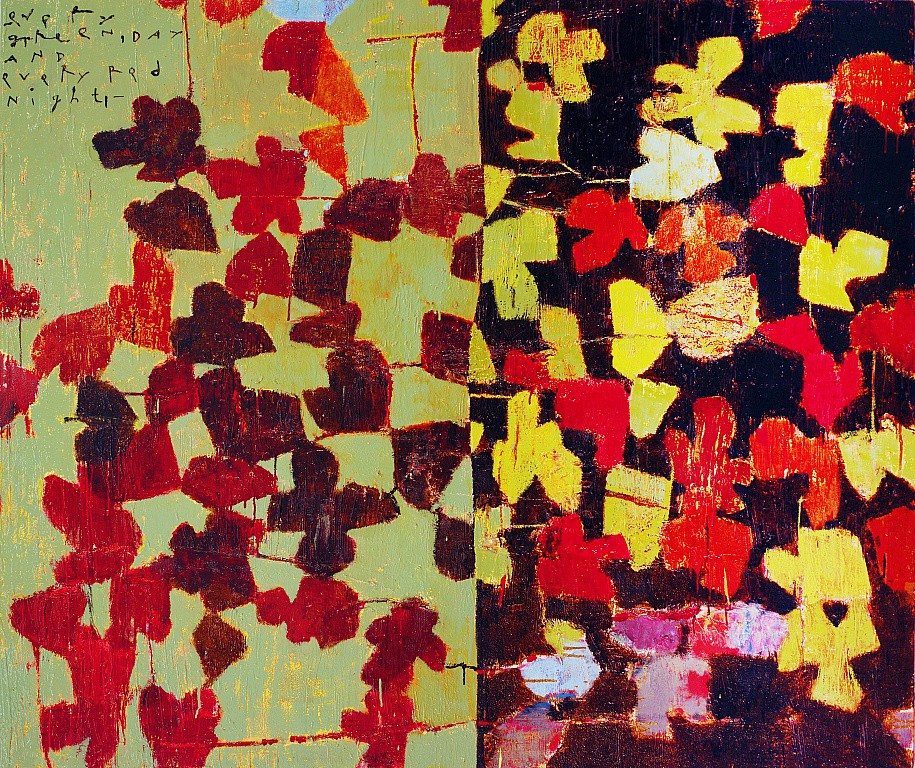 every
green, day
AND
every red
night, -